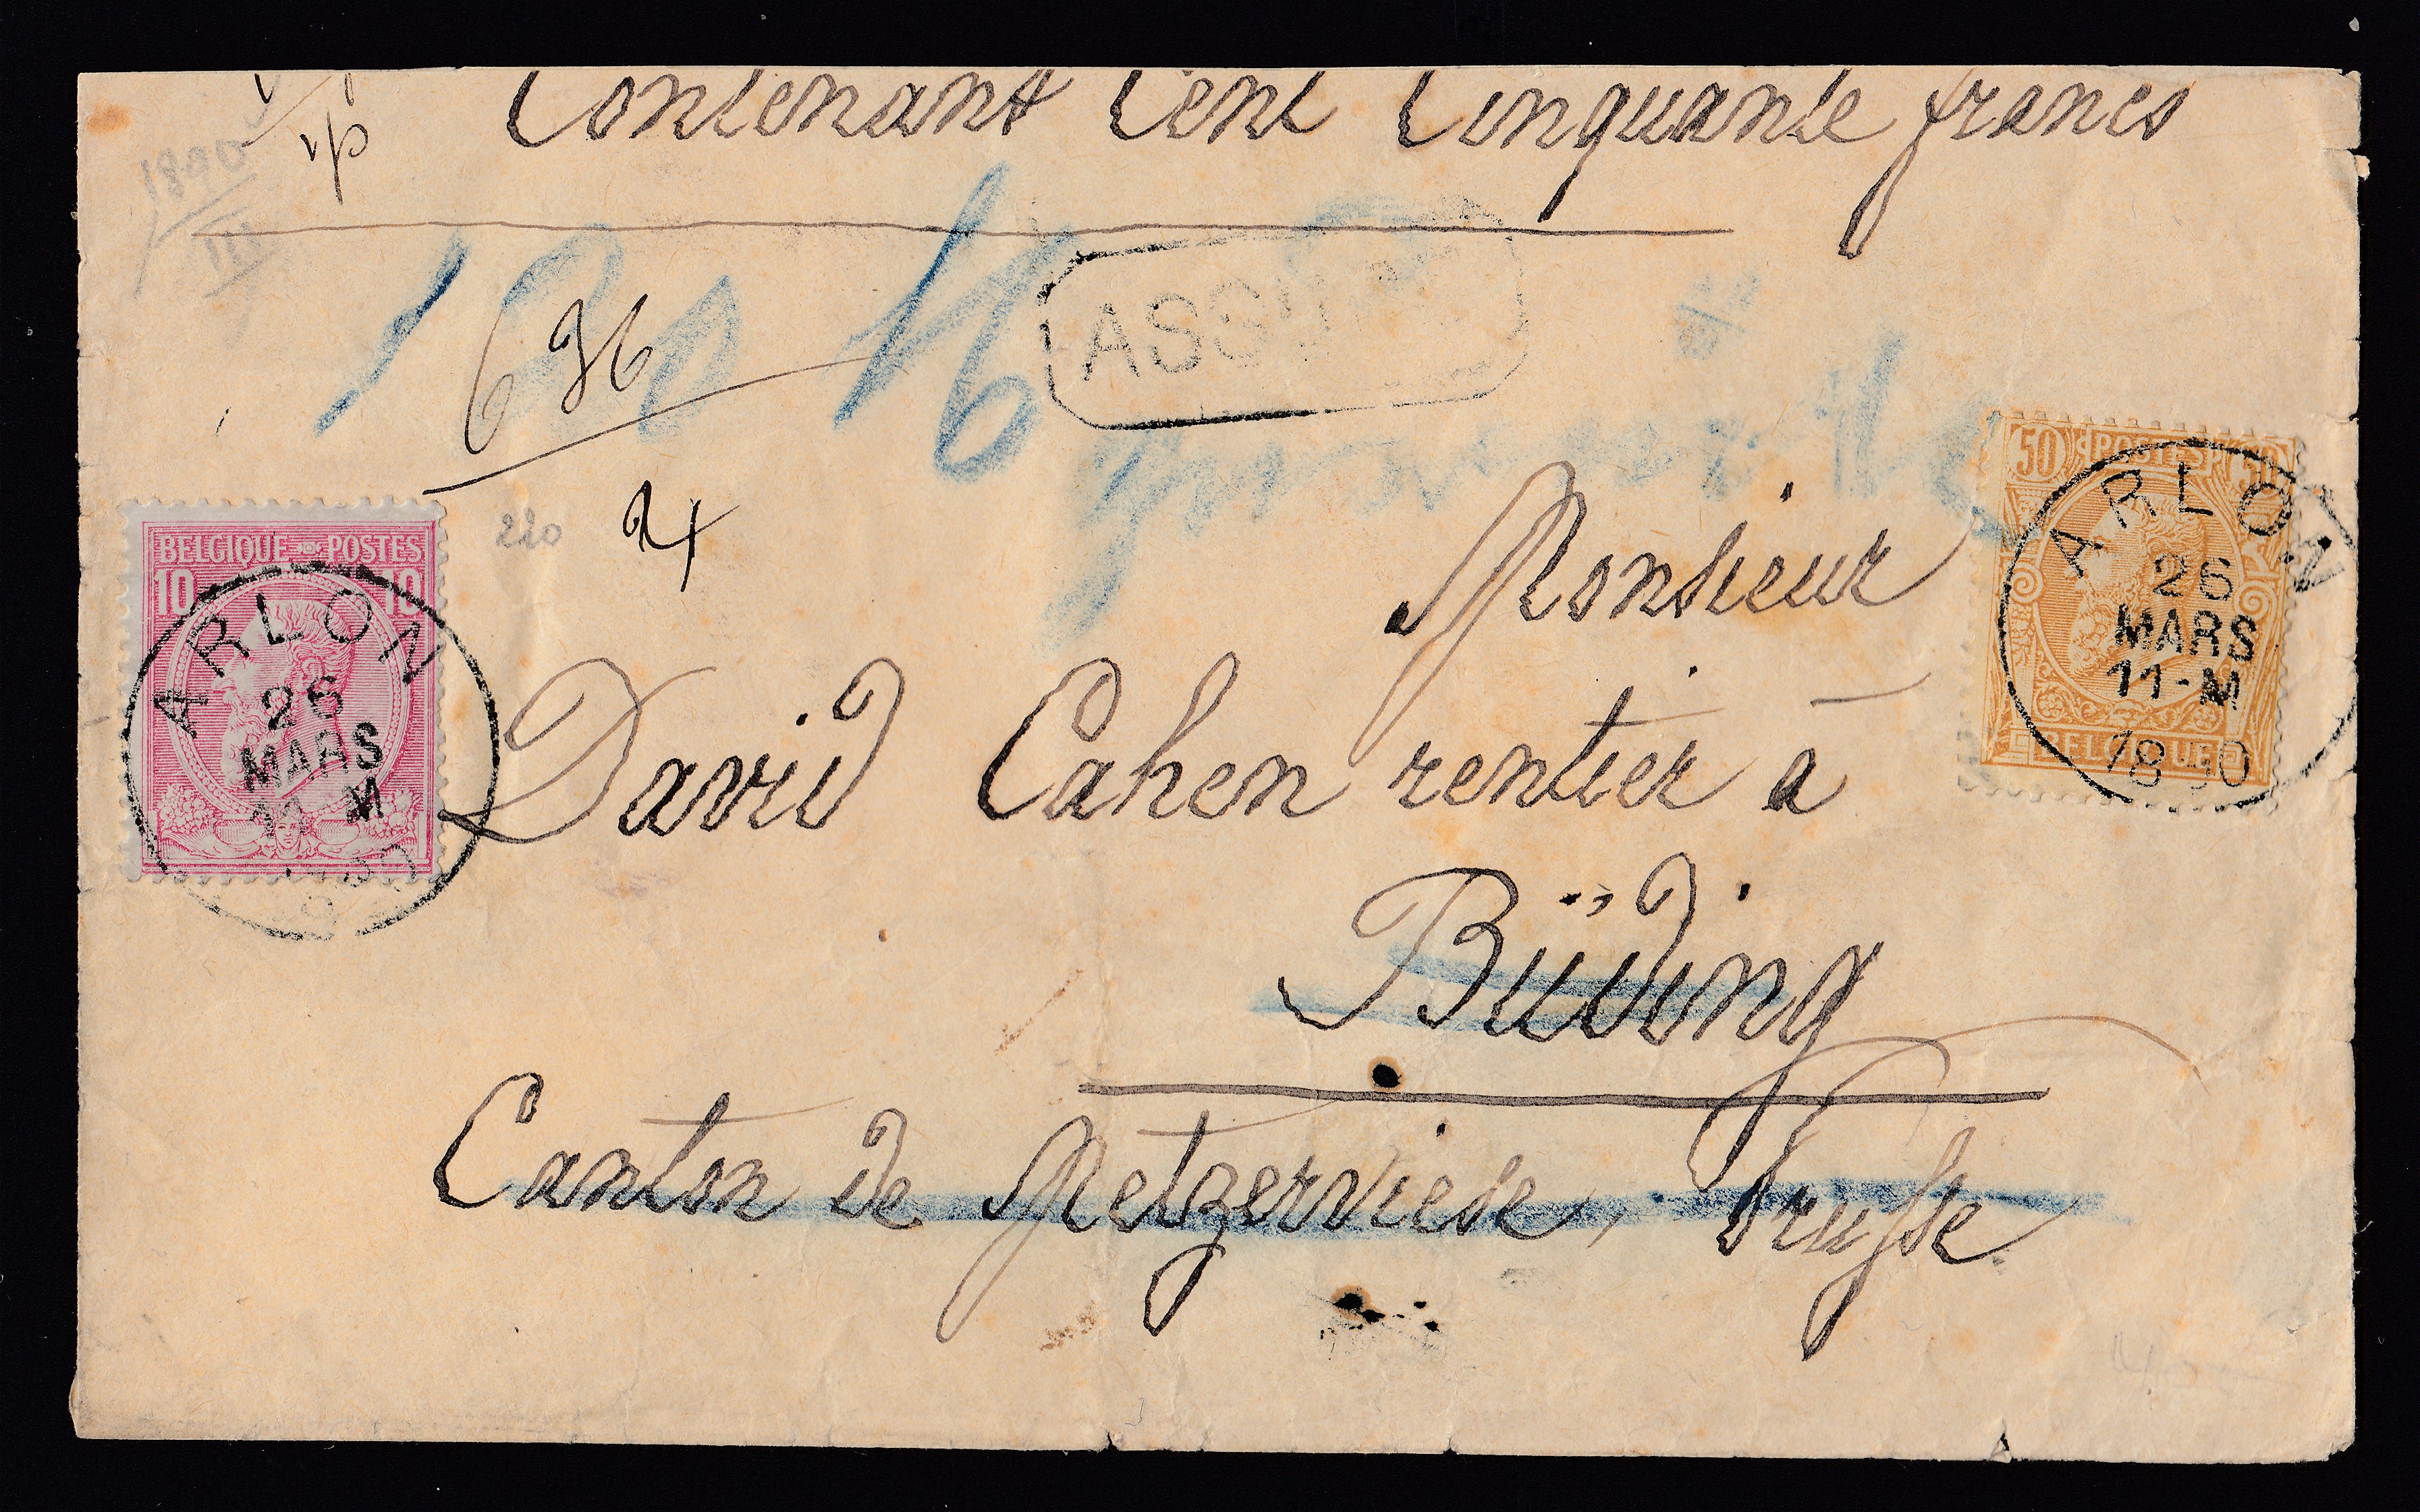 Contenant Cent Cinquante francs
1890
III
120 M
636
24
220
BELGIQUE POSTES
10 10
ARLON
26
MARS
11-M
50 POSTES 50
BELGIQUE
ARLON
26
MARS
11-M
1890
Monsieur
David Cahen rentier à
Büding
Canton de Metzerviese, Prusse